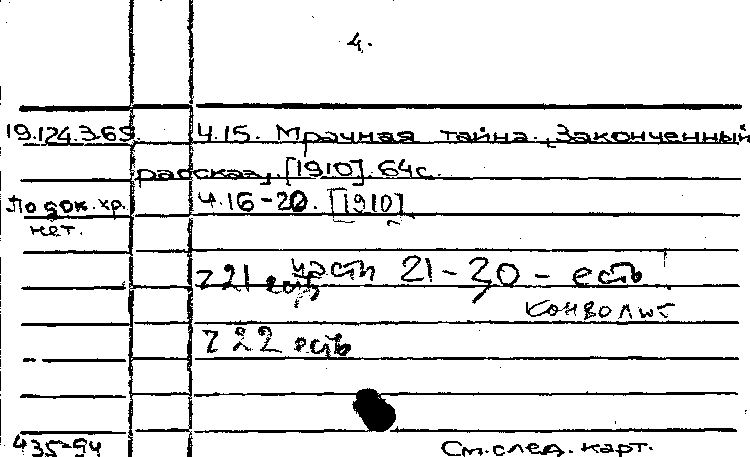 4.
19.124.3.69. Ч.15. Мрачная тайна. Законченный
рассказ, [1910]. 64с.
По док. хр. Ч.16-20. [1910]
нет.
ч 21 есть части 21-30 - есть
конволют
ч 22 есть
435-94 См. след. карт.